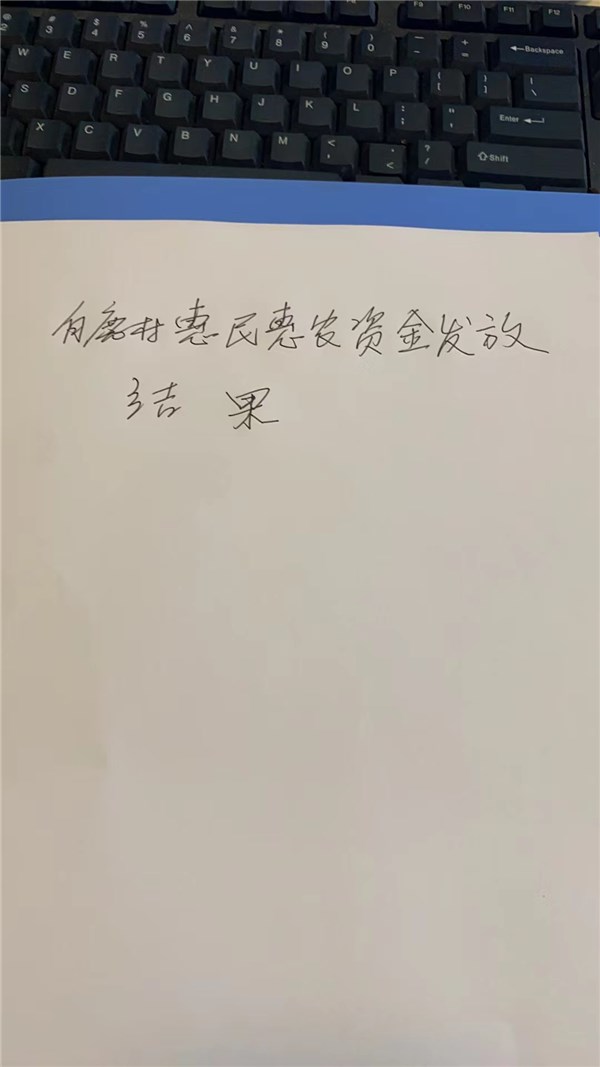 # $ % ^ & * ( ) — + ←Backspace
2 3 4 5 6 7 8 9 0 - =
F9 F10 F11 F12
W E R T Y U I O P { [ } ] | \
S D F G H J K L : ; " ' Enter
X C V B N M < , > . ? / ⇧Shift
村惠民惠农资金发放
结果